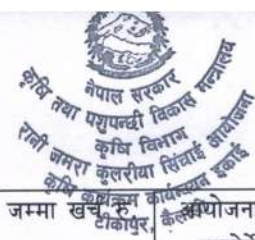 नेपाल सरकार
कृषि तथा पशुपन्छी विकास मन्त्रालय
कृषि विभाग
रानी जमरा कुलरीया सिंचाई आयोजना
कृषि कार्यक्रम कार्यान्वयन इकाई
टीकापुर, कैलाली
जम्मा खर्च रु.